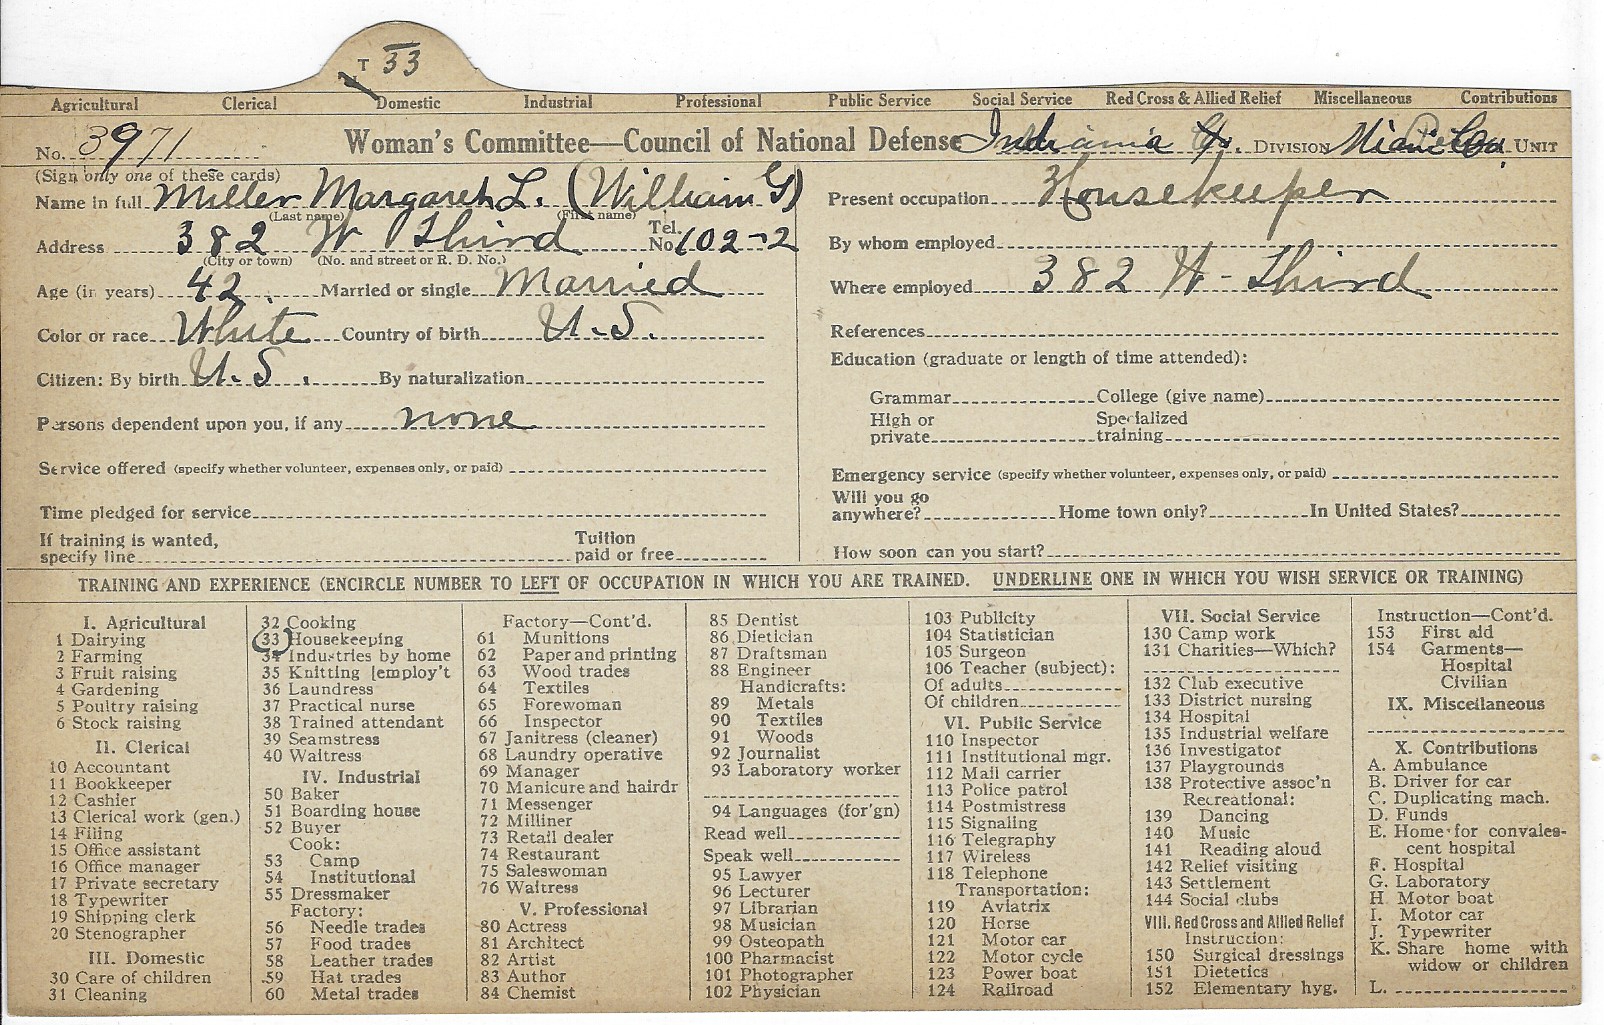 T 33
Agricultural Clerical Domestic Industrial Professional Public Service Social Service Red Cross & Allied Relief Miscellaneous Contributions
No. 3971 Woman's Committee—Council of National Defense Indiana DIVISION Miami Co. UNIT
(Sign only one of these cards)
Name in full Miller Margaret L. (William G)
(Last name) (First name)
Address 382 W Third Tel. No. 102-2
(City or town) (No. and street or R. D. No.)
Age (in years) 42. Married or single Married
Color or race White Country of birth U.S.
Citizen: By birth U.S. By naturalization
Persons dependent upon you, if any none
Service offered (specify whether volunteer, expenses only, or paid)
Time pledged for service
If training is wanted, specify line Tuition paid or free
Present occupation Housekeeper
By whom employed
Where employed 382 W - Third
References
Education (graduate or length of time attended):
Grammar College (give name)
High or private Specialized training
Emergency service (specify whether volunteer, expenses only, or paid)
Will you go anywhere? Home town only? In United States?
How soon can you start?
TRAINING AND EXPERIENCE (ENCIRCLE NUMBER TO LEFT OF OCCUPATION IN WHICH YOU ARE TRAINED. UNDERLINE ONE IN WHICH YOU WISH SERVICE OR TRAINING)
I. Agricultural
1 Dairying
2 Farming
3 Fruit raising
4 Gardening
5 Poultry raising
6 Stock raising
II. Clerical
10 Accountant
11 Bookkeeper
12 Cashier
13 Clerical work (gen.)
14 Filing
15 Office assistant
16 Office manager
17 Private secretary
18 Typewriter
19 Shipping clerk
20 Stenographer
III. Domestic
30 Care of children
31 Cleaning
32 Cooking
33 Housekeeping
34 Industries by home
35 Knitting [employ't
36 Laundress
37 Practical nurse
38 Trained attendant
39 Seamstress
40 Waitress
IV. Industrial
50 Baker
51 Boarding house
52 Buyer
Cook:
53 Camp
54 Institutional
55 Dressmaker
Factory:
56 Needle trades
57 Food trades
58 Leather trades
59 Hat trades
60 Metal trades
Factory—Cont'd.
61 Munitions
62 Paper and printing
63 Wood trades
64 Textiles
65 Forewoman
66 Inspector
67 Janitress (cleaner)
68 Laundry operative
69 Manager
70 Manicure and hairdr
71 Messenger
72 Milliner
73 Retail dealer
74 Restaurant
75 Saleswoman
76 Waitress
V. Professional
80 Actress
81 Architect
82 Artist
83 Author
84 Chemist
85 Dentist
86 Dietician
87 Draftsman
88 Engineer
Handicrafts:
89 Metals
90 Textiles
91 Woods
92 Journalist
93 Laboratory worker
94 Languages (for'gn)
Read well
Speak well
95 Lawyer
96 Lecturer
97 Librarian
98 Musician
99 Osteopath
100 Pharmacist
101 Photographer
102 Physician
103 Publicity
104 Statistician
105 Surgeon
106 Teacher (subject):
Of adults
Of children
VI. Public Service
110 Inspector
111 Institutional mgr.
112 Mail carrier
113 Police patrol
114 Postmistress
115 Signaling
116 Telegraphy
117 Wireless
118 Telephone
Transportation:
119 Aviatrix
120 Horse
121 Motor car
122 Motor cycle
123 Power boat
124 Railroad
VII. Social Service
130 Camp work
131 Charities—Which?
132 Club executive
133 District nursing
134 Hospital
135 Industrial welfare
136 Investigator
137 Playgrounds
138 Protective assoc'n
Recreational:
139 Dancing
140 Music
141 Reading aloud
142 Relief visiting
143 Settlement
144 Social clubs
VIII. Red Cross and Allied Relief
Instruction:
150 Surgical dressings
151 Dietetics
152 Elementary hyg.
Instruction—Cont'd.
153 First aid
154 Garments—
Hospital
Civilian
IX. Miscellaneous
X. Contributions
A. Ambulance
B. Driver for car
C. Duplicating mach.
D. Funds
E. Home for convales-
cent hospital
F. Hospital
G. Laboratory
H. Motor boat
I. Motor car
J. Typewriter
K. Share home with
widow or children
L.